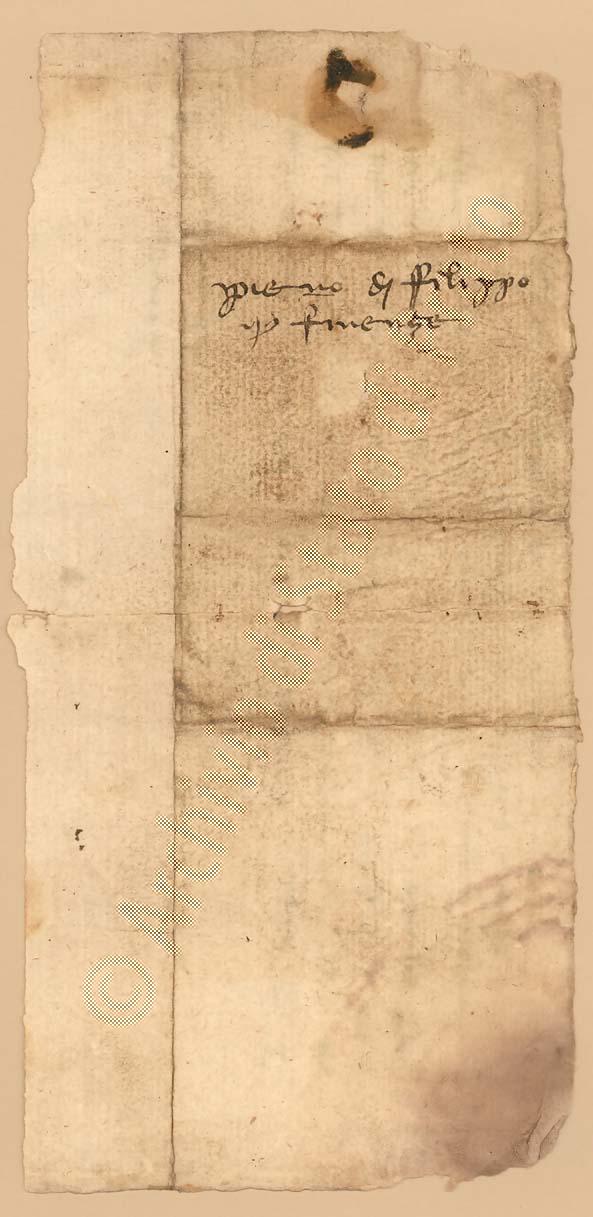 piero di ffilippo
firenze
© Archivio di Stato di Prato